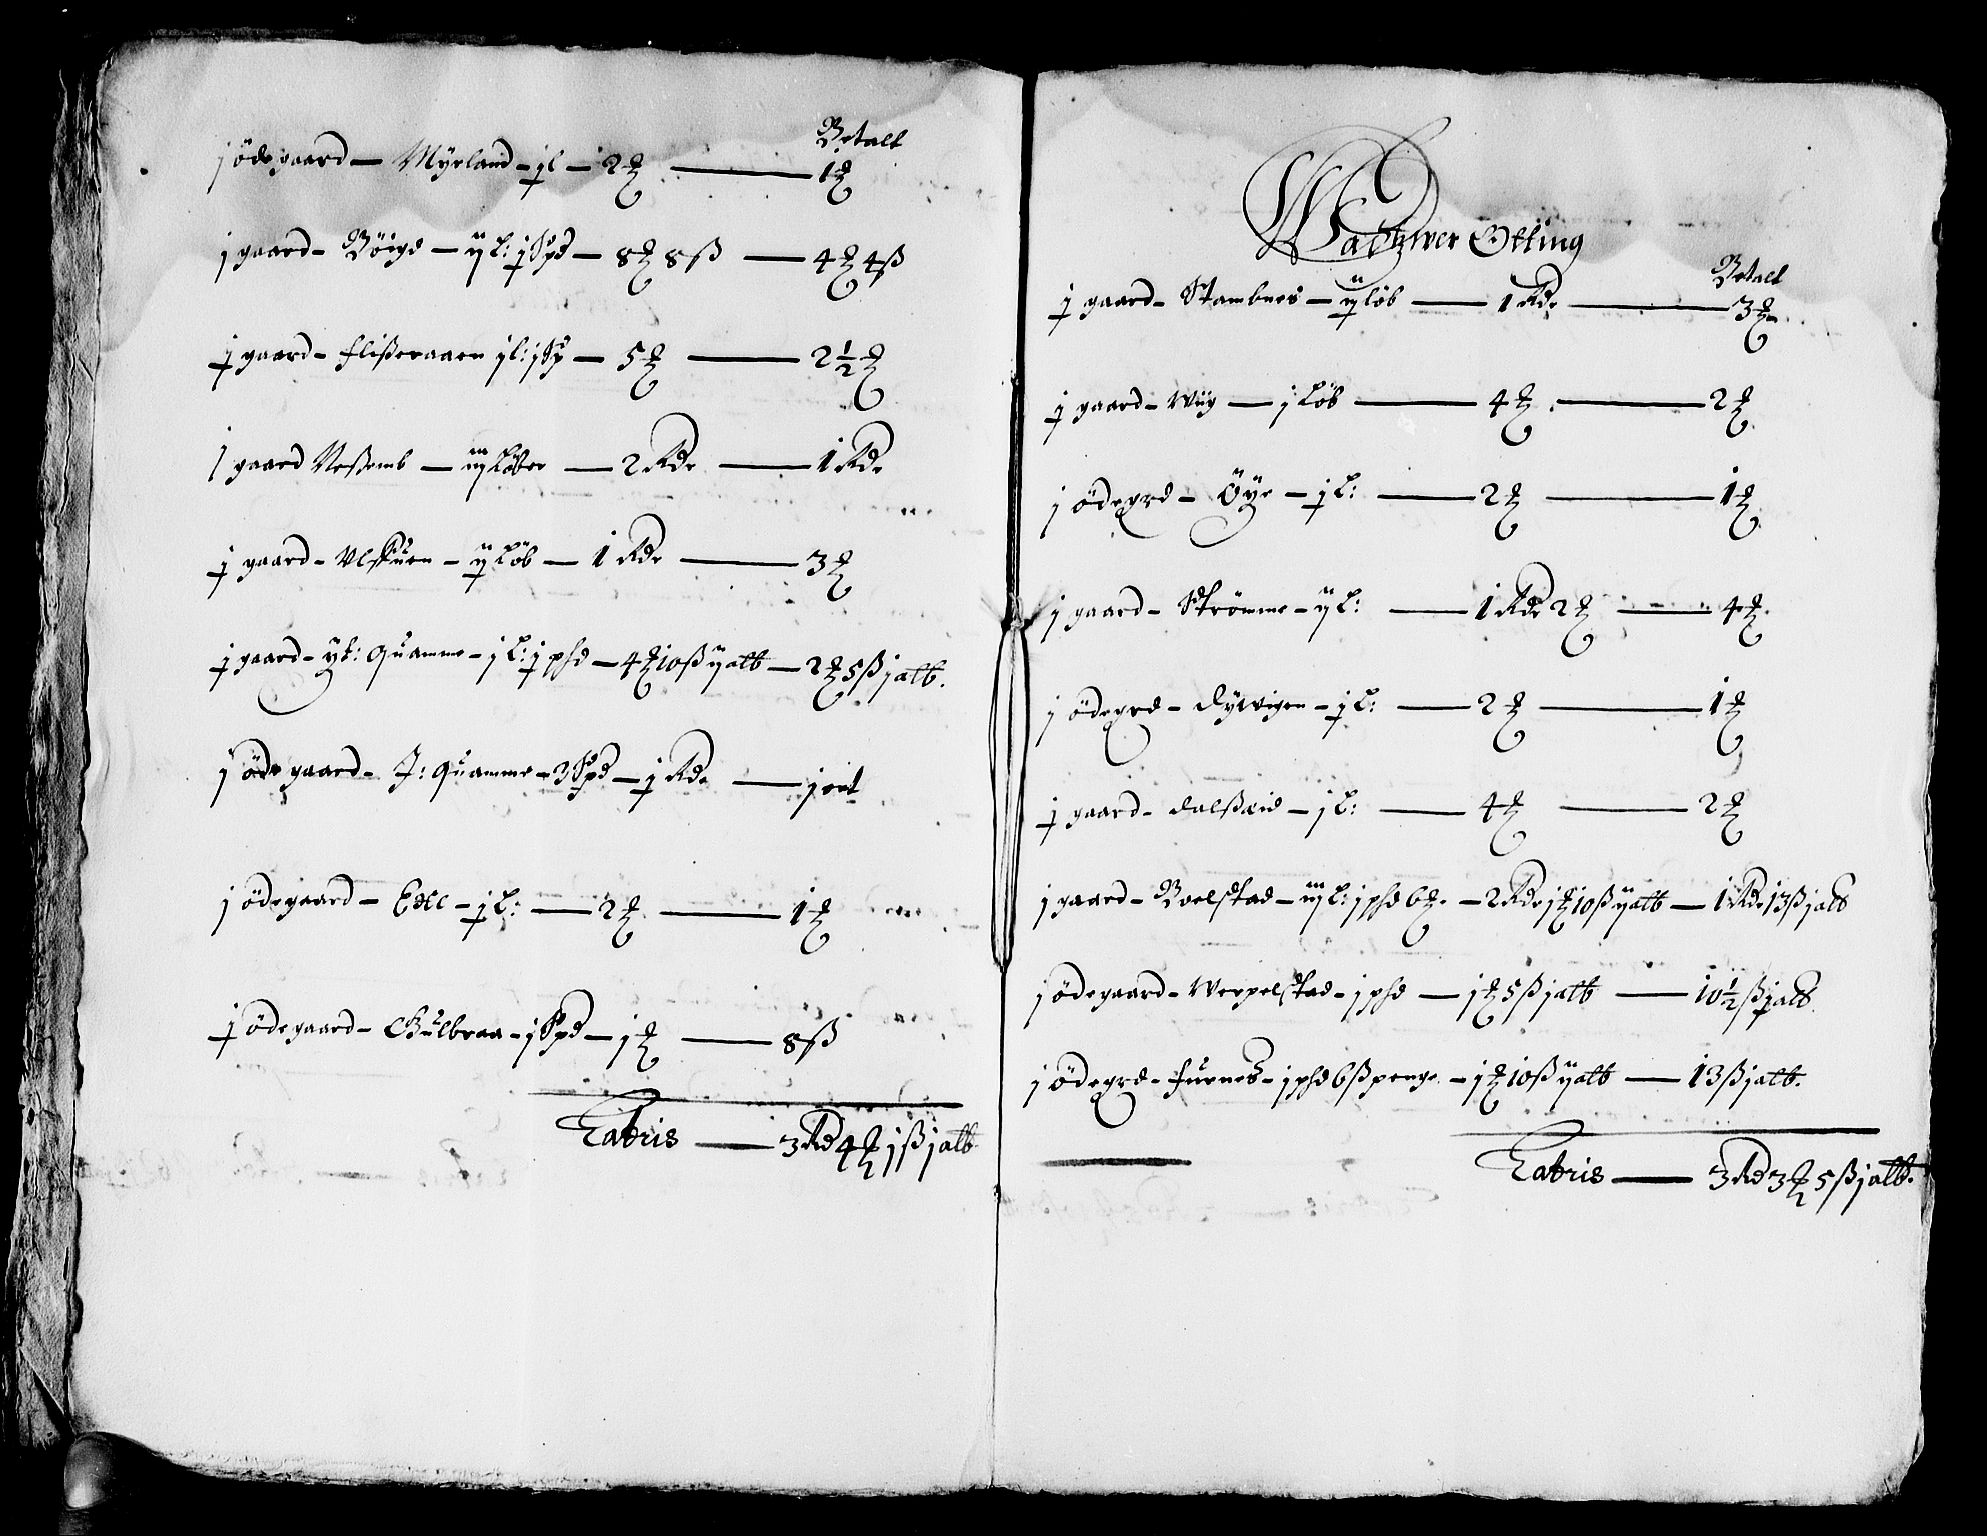 Betalt
j ödegaard — Myrland - j l — 2 ₰ — 1 ₰
j gaard - Böigd — ij l: j Spd — 8 ₰ 8 ß — 4 ₰ 4 ß
j gaard - flißeraaen j l: j Sp — 5 ₰ — 2 ½ ₰
j gaard Neßemb — iij Löber — 2 Rdr — 1 Rdr
j gaard - Vlskuen - ij Löb — 1 Rdr — 3 ₰
j gaard - yt: Quamme - j L: j phd — 4 ₰ 10 ß ij alb — 2 ₰ 5 ß j alb.
j öde gaard - J: Quamme - 3 Spd — j Rdr — j ort
j ödegaard — Edll - j L: — 2 ₰ — 1 ₰
j ödegaard - Gulbraa - j Spd — j ₰ — 8 ß
Latris — 3 Rd 4 ₰ j ß j alb
Watzwer Otting
Betalt
j gaard - Stambnes — ij löb — 1 Rdr — 3 ₰
j gaard - Wiig — j Löb — 4 ₰ — 2 ₰
j ödegrd - Öye - j L: — 2 ₰ — 1 ₰
j gaard - Strömme - ij L: — 1 Rdr 2 ₰ — 4 ₰
j ödegrd - dywigen - j L: — 2 ₰ — 1 ₰
j gaard - dalßeid - j L: — 4 ₰ — 2 ₰
j gaard - Boelstad - iij L: j phd 6 ₰ — 2 Rdr j ₰ 10 ß ij alb — 1 Rdr 13 ß j alb
j ödegaard - Werpelstad - j phd — j ₰ 5 ß j alb — 10 ½ ß j alb
j ödegrd - furnes - j phd 6 ß penge — j ₰ 10 ß ij alb — 13 ß j alb.
Latris — 3 Rd 3 ₰ 5 ß j alb.